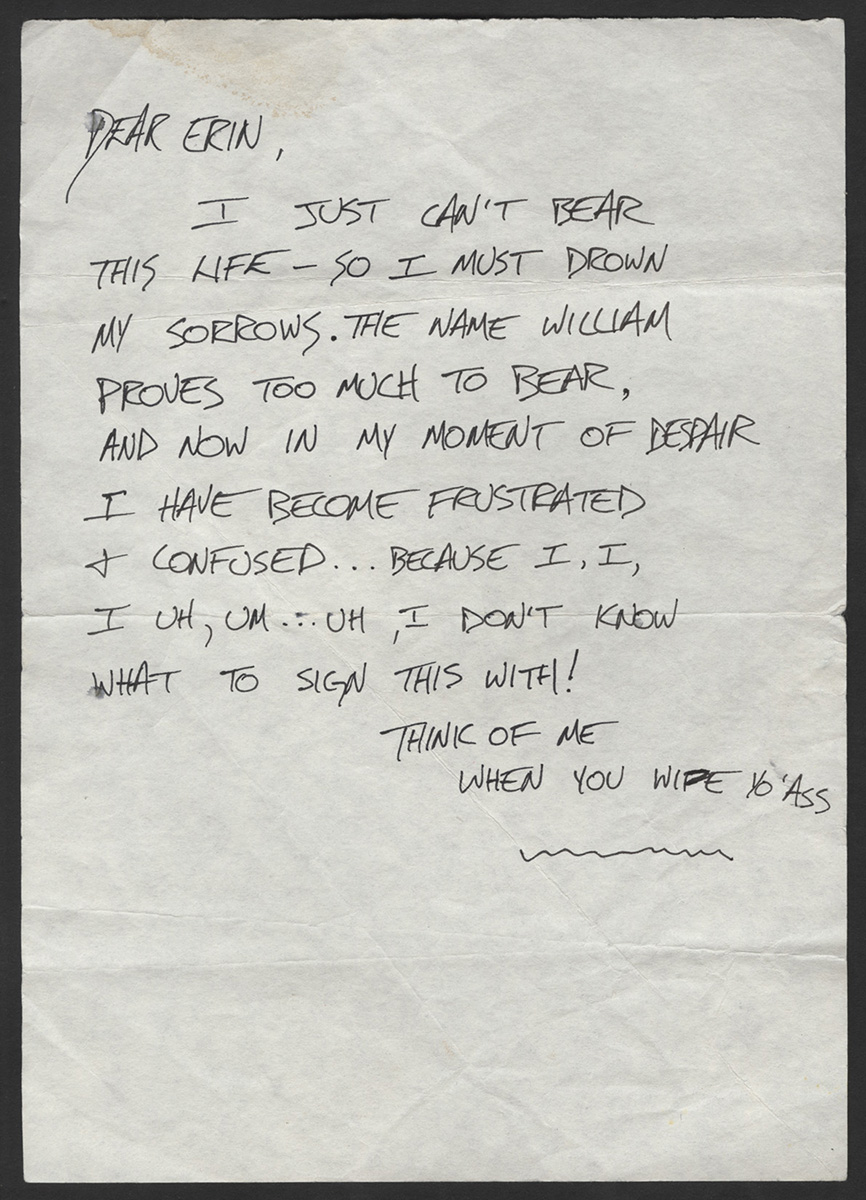 DEAR ERIN,
I JUST CAN'T BEAR
THIS LIFE – SO I MUST DROWN
MY SORROWS. THE NAME WILLIAM
PROVES TOO MUCH TO BEAR,
AND NOW IN MY MOMENT OF DESPAIR
I HAVE BECOME FRUSTRATED
& CONFUSED... BECAUSE I, I,
I UH, UM ... UH, I DON'T KNOW
WHAT TO SIGN THIS WITH!
THINK OF ME
WHEN YOU WIPE YO' ASS